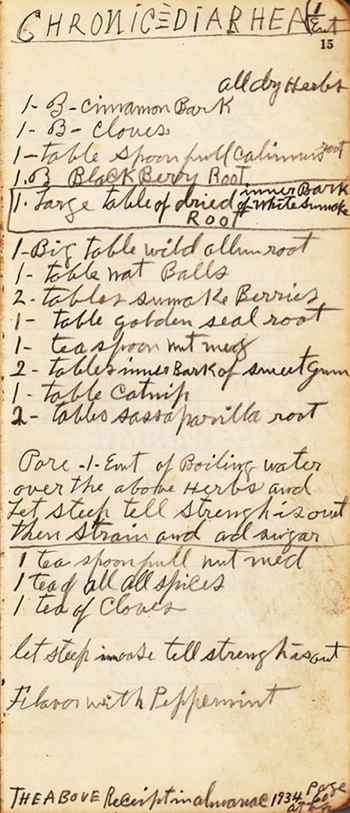 CHRONIC=DIARHEA
1
Emt
15
all dry Herbs
1- B-cinnamon Bark
1- B- cloves
1-table spoon full Calimus root
1.B Black Berry Root
1. Large table of dried inner Bark of white sumake
ROOT
1-Big table wild allum root
1- table nat Balls
2- tables sumake Berries
1- table golden seal root
1- teaspoon nut meg
2- tables inner Bark of sweet gum
1- table Catnip
2- tables sassaparilla root
Pore -1-Emt of Boiling water
over the above Herbs and
Let steep tell strength is out
then strain and ad sugar
1 tea spoon full nut med
1 tea of all all spices
1 tea of Cloves
let steep tell strength is out
Flavor with Peppermint
THE ABOVE Receipt in almanac 1934 Page